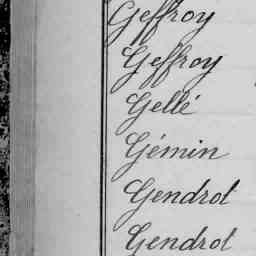 Geffroy
Geffroy
Gellé
Gémin
Gendrot
Gendrot